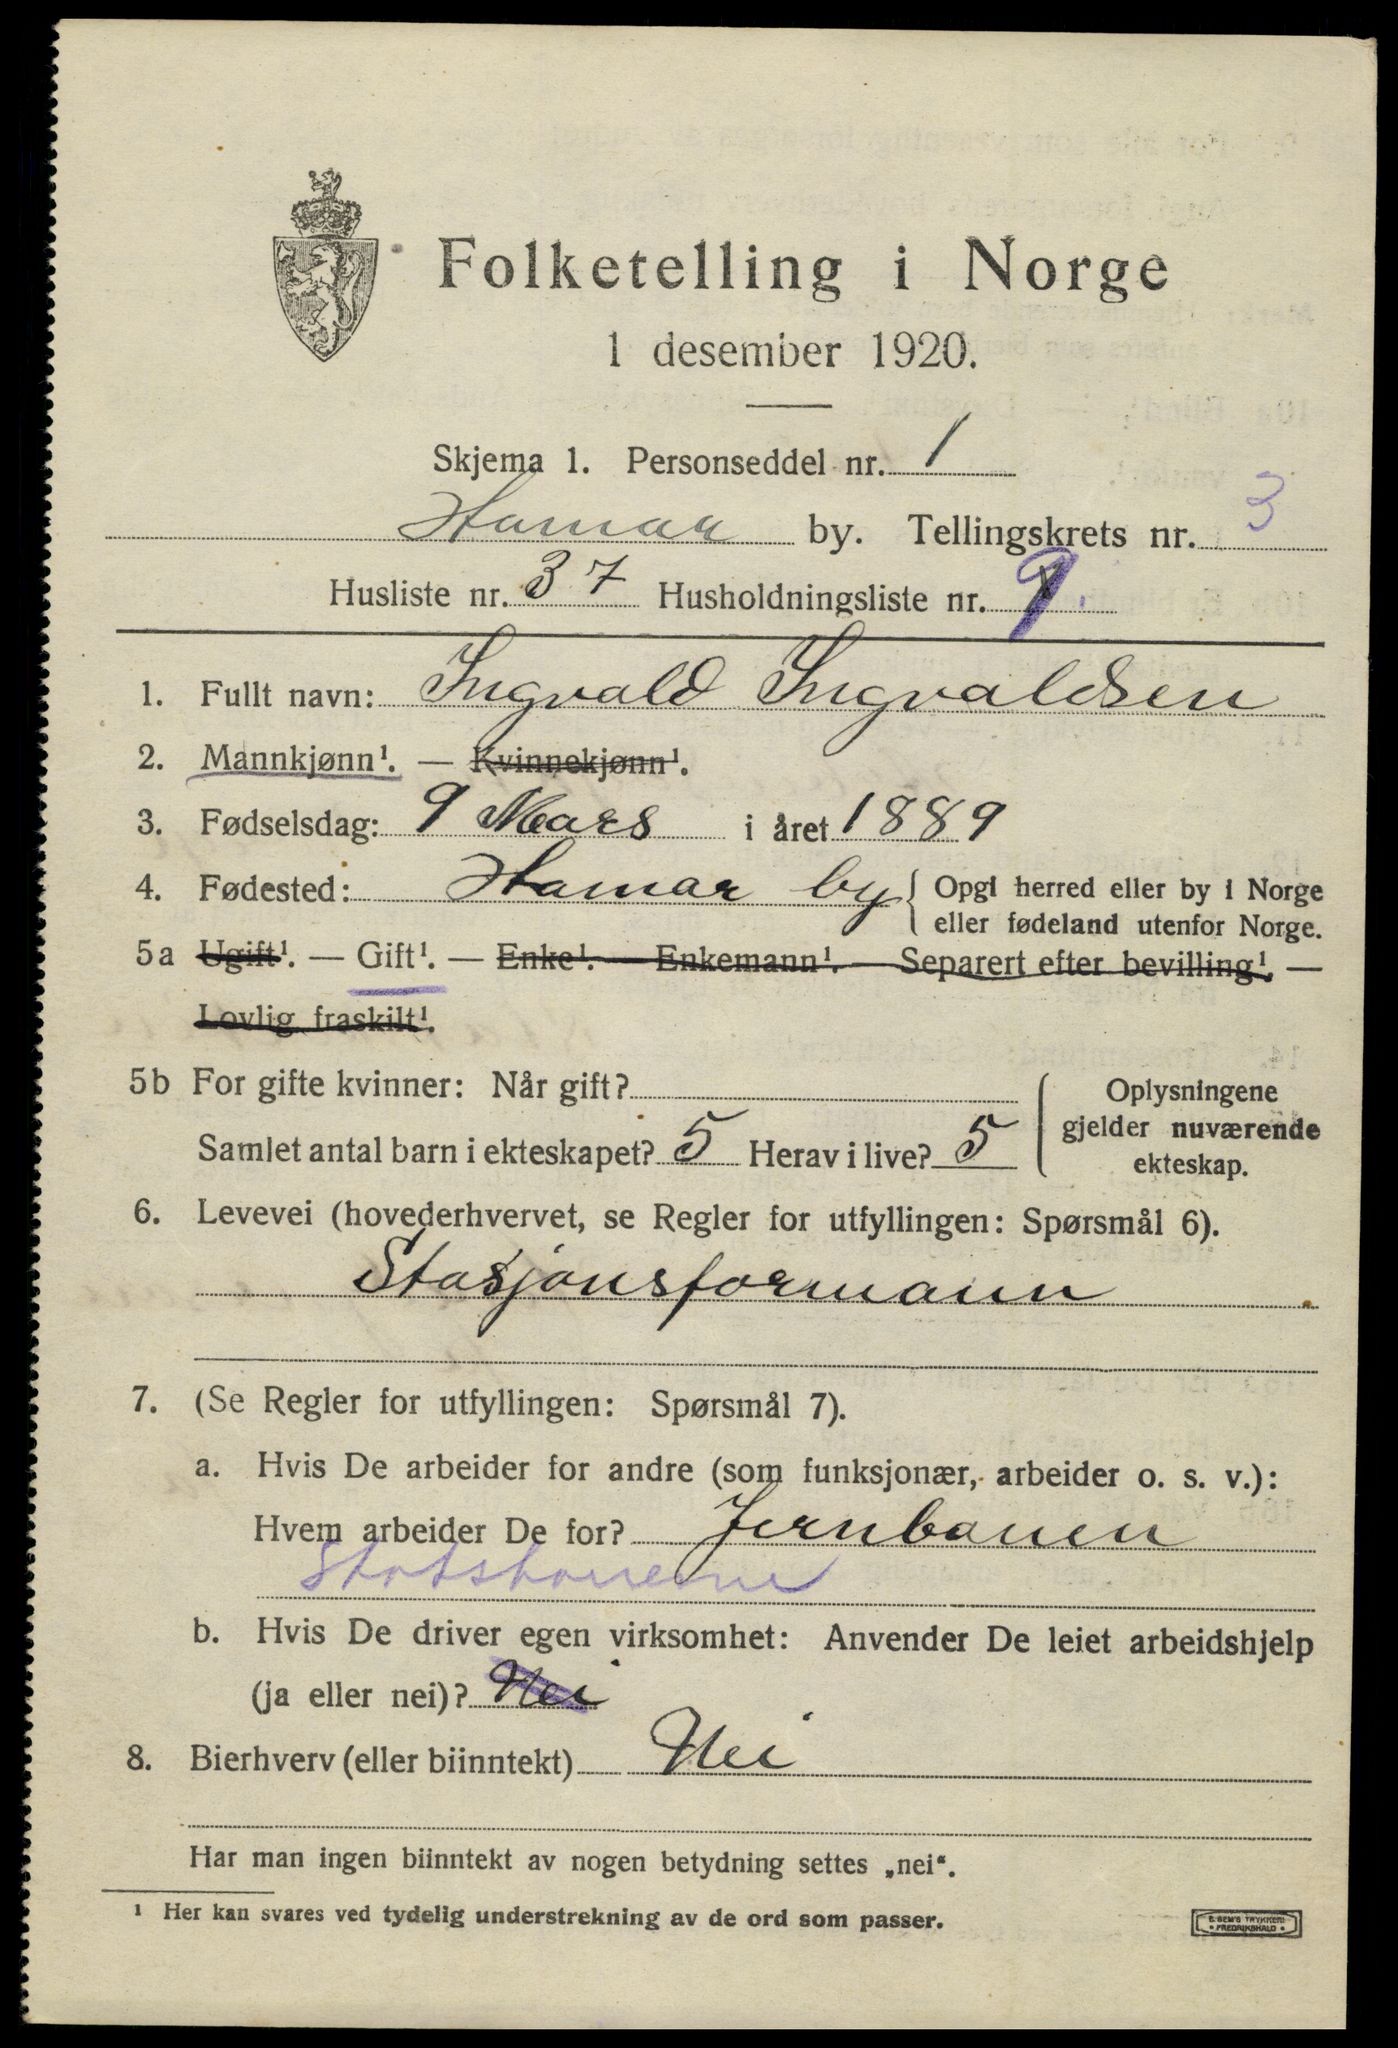 Folketelling i Norge
1 desember 1920.
Skjema 1. Personseddel nr. 1
Hamar by. Tellingskrets nr. 3
Husliste nr. 37 Husholdningsliste nr. 9
1. Fullt navn: Ingvald Ingvaldsen
2. Mannkjønn¹. — Kvinnekjønn¹.
3. Fødselsdag: 9 Mars i året 1889
4. Fødested: Hamar by { Opgi herred eller by i Norge
eller fødeland utenfor Norge.
5a Ugift¹. — Gift¹. — Enke¹. — Enkemann¹. — Separert efter bevilling¹. —
Lovlig fraskilt¹.
5b For gifte kvinner: Når gift?
Samlet antal barn i ekteskapet? 5 Herav i live? 5
Oplysningene
gjelder nuværende
ekteskap.
6. Levevei (hovederhvervet, se Regler for utfyllingen: Spørsmål 6).
Stasjonsformann
7. (Se Regler for utfyllingen: Spørsmål 7).
a. Hvis De arbeider for andre (som funksjonær, arbeider o. s. v.):
Hvem arbeider De for? Jernbanen
Statsbanerne
b. Hvis De driver egen virksomhet: Anvender De leiet arbeidshjelp
(ja eller nei)? Nei
8. Bierhverv (eller biinntekt) Nei
Har man ingen biinntekt av nogen betydning settes „nei“.
¹ Her kan svares ved tydelig understrekning av de ord som passer.
E. SEM'S TRYKKERI
• FREDRIKSHALD •